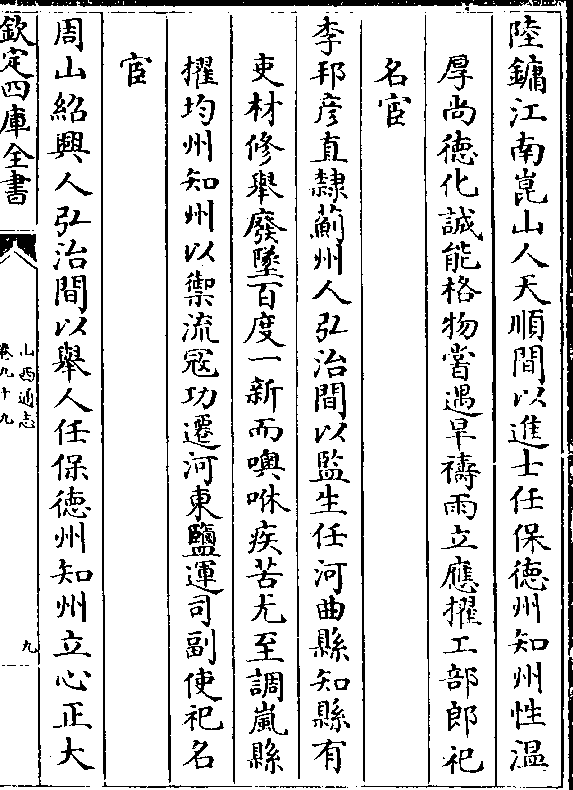 陸鏞江南崑山人天順間以進士任保德州知州性温
厚尚徳化誠能格物嘗遇旱禱雨立應擢工部郎祀
名宦
李邦彦直隸薊州人弘治間以監生任河曲縣知縣有
吏材修舉廢墜百度一新而噢咻疾苦尤至調嵐縣
擢均州知州以禦流冦功遷河東鹽運司副使祀名
宦
周山紹興人弘治間以舉人任保徳州知州立心正大
欽定四庫全書
山西通志
卷九十九
九